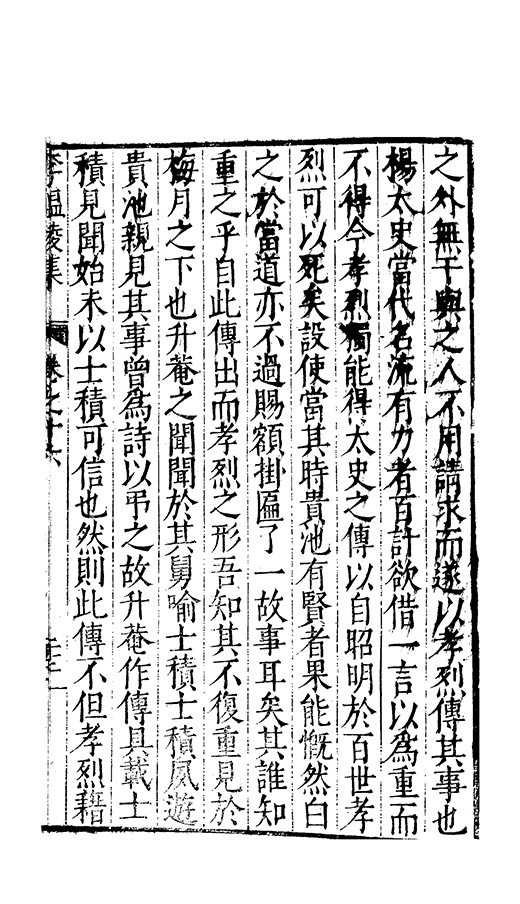 之外無干與之人不用請求而遂以孝烈傳其事也
楊太史當代名流有力者百計欲借一言以為重而
不得今孝烈獨能得太史之傳以自昭明於百世孝
烈可以死矣設使當其時貴池有賢者果能慨然白
之於當道亦不過賜額掛匾了一故事耳矣其誰知
重之乎自此傳出而孝烈之形吾知其不復重見於
梅月之下也升菴之聞聞於其舅喻士積士積夙遊
貴池親見其事曾為詩以弔之故升菴作傳具載士
積見聞始末以士積可信也然則此傳不但孝烈藉
李溫陵集 卷之十六